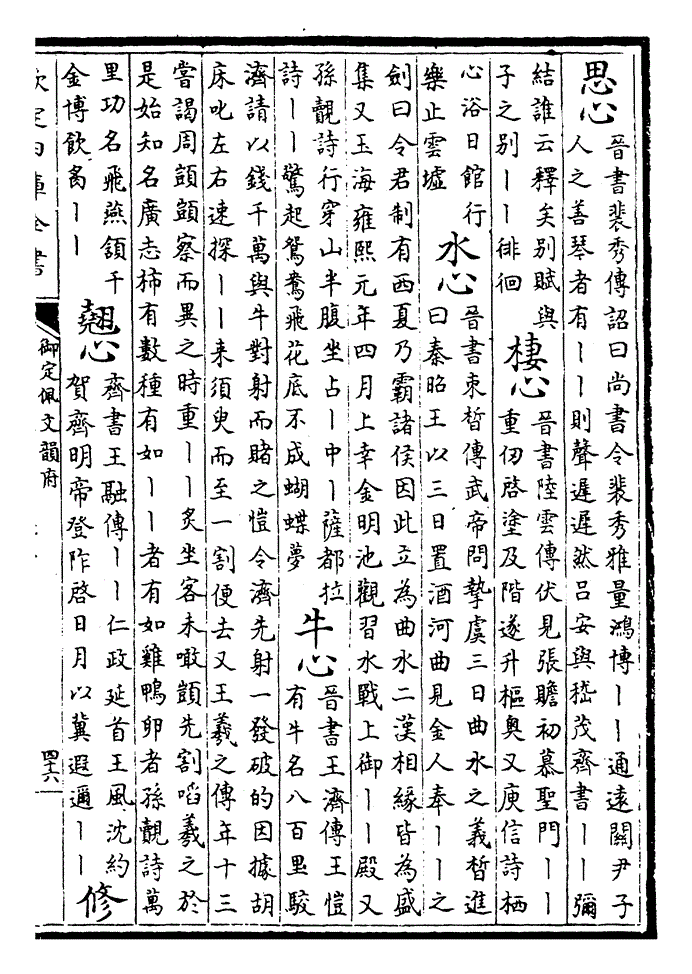 思心 晉書裴秀傳詔曰尚書令裴秀雅量鴻博丨丨通遠關尹子
人之善琴者有丨丨則聲遲遲然吕安與嵇茂齊書丨丨彌
結誰云釋矣别賦與
子之别丨丨徘徊
棲心 晉書陸雲傳伏見張贍初慕聖門丨丨
重仞啓塗及階遂升樞奥又庾信詩栖
心浴日館行
樂止雲墟
水心 晉書束皙傳武帝問摯虞三日曲水之義皙進
曰秦昭王以三日置酒河曲見金人奉丨丨之
劍曰令君制有西夏乃霸諸侯因此立為曲水二漢相緣皆為盛
集又玉海雍熙元年四月上幸金明池觀習水戰上御丨丨殿又
孫覿詩行穿山半腹坐占丨中丨薩都拉
詩丨丨驚起鴛鴦飛花底不成蝴蝶夢
牛心 晉書王濟傳王愷
有牛名八百里駮
濟請以錢千萬與牛對射而賭之愷令濟先射一發破的因據胡
床叱左右速探丨丨来須臾而至一割便去又王羲之傳年十三
嘗謁周顗顗察而異之時重丨丨炙坐客未噉顗先割啗羲之於
是始知名廣志柿有數種有如丨丨者有如雞鴨卵者孫覿詩萬
里功名飛燕頷千
金博飲禼丨丨
翹心 齊書王融傳丨丨仁政延首王風沈約
賀齊明帝登阼啓日月以冀遐邇丨丨
修
欽定四庫全書
御定佩文韻府
四十六